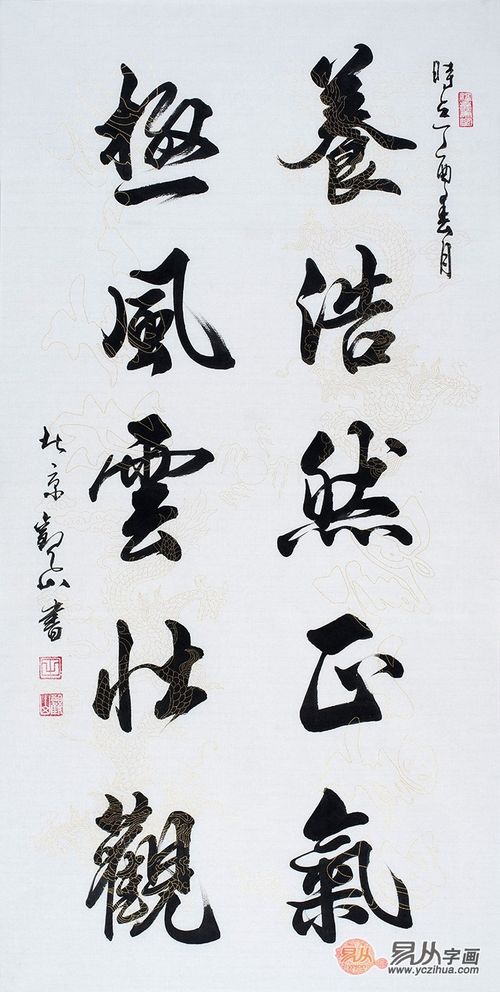 時在丁酉春月
養浩然正氣
極風雲壯觀
北京觀山書
易从字画
www.yczihua.com